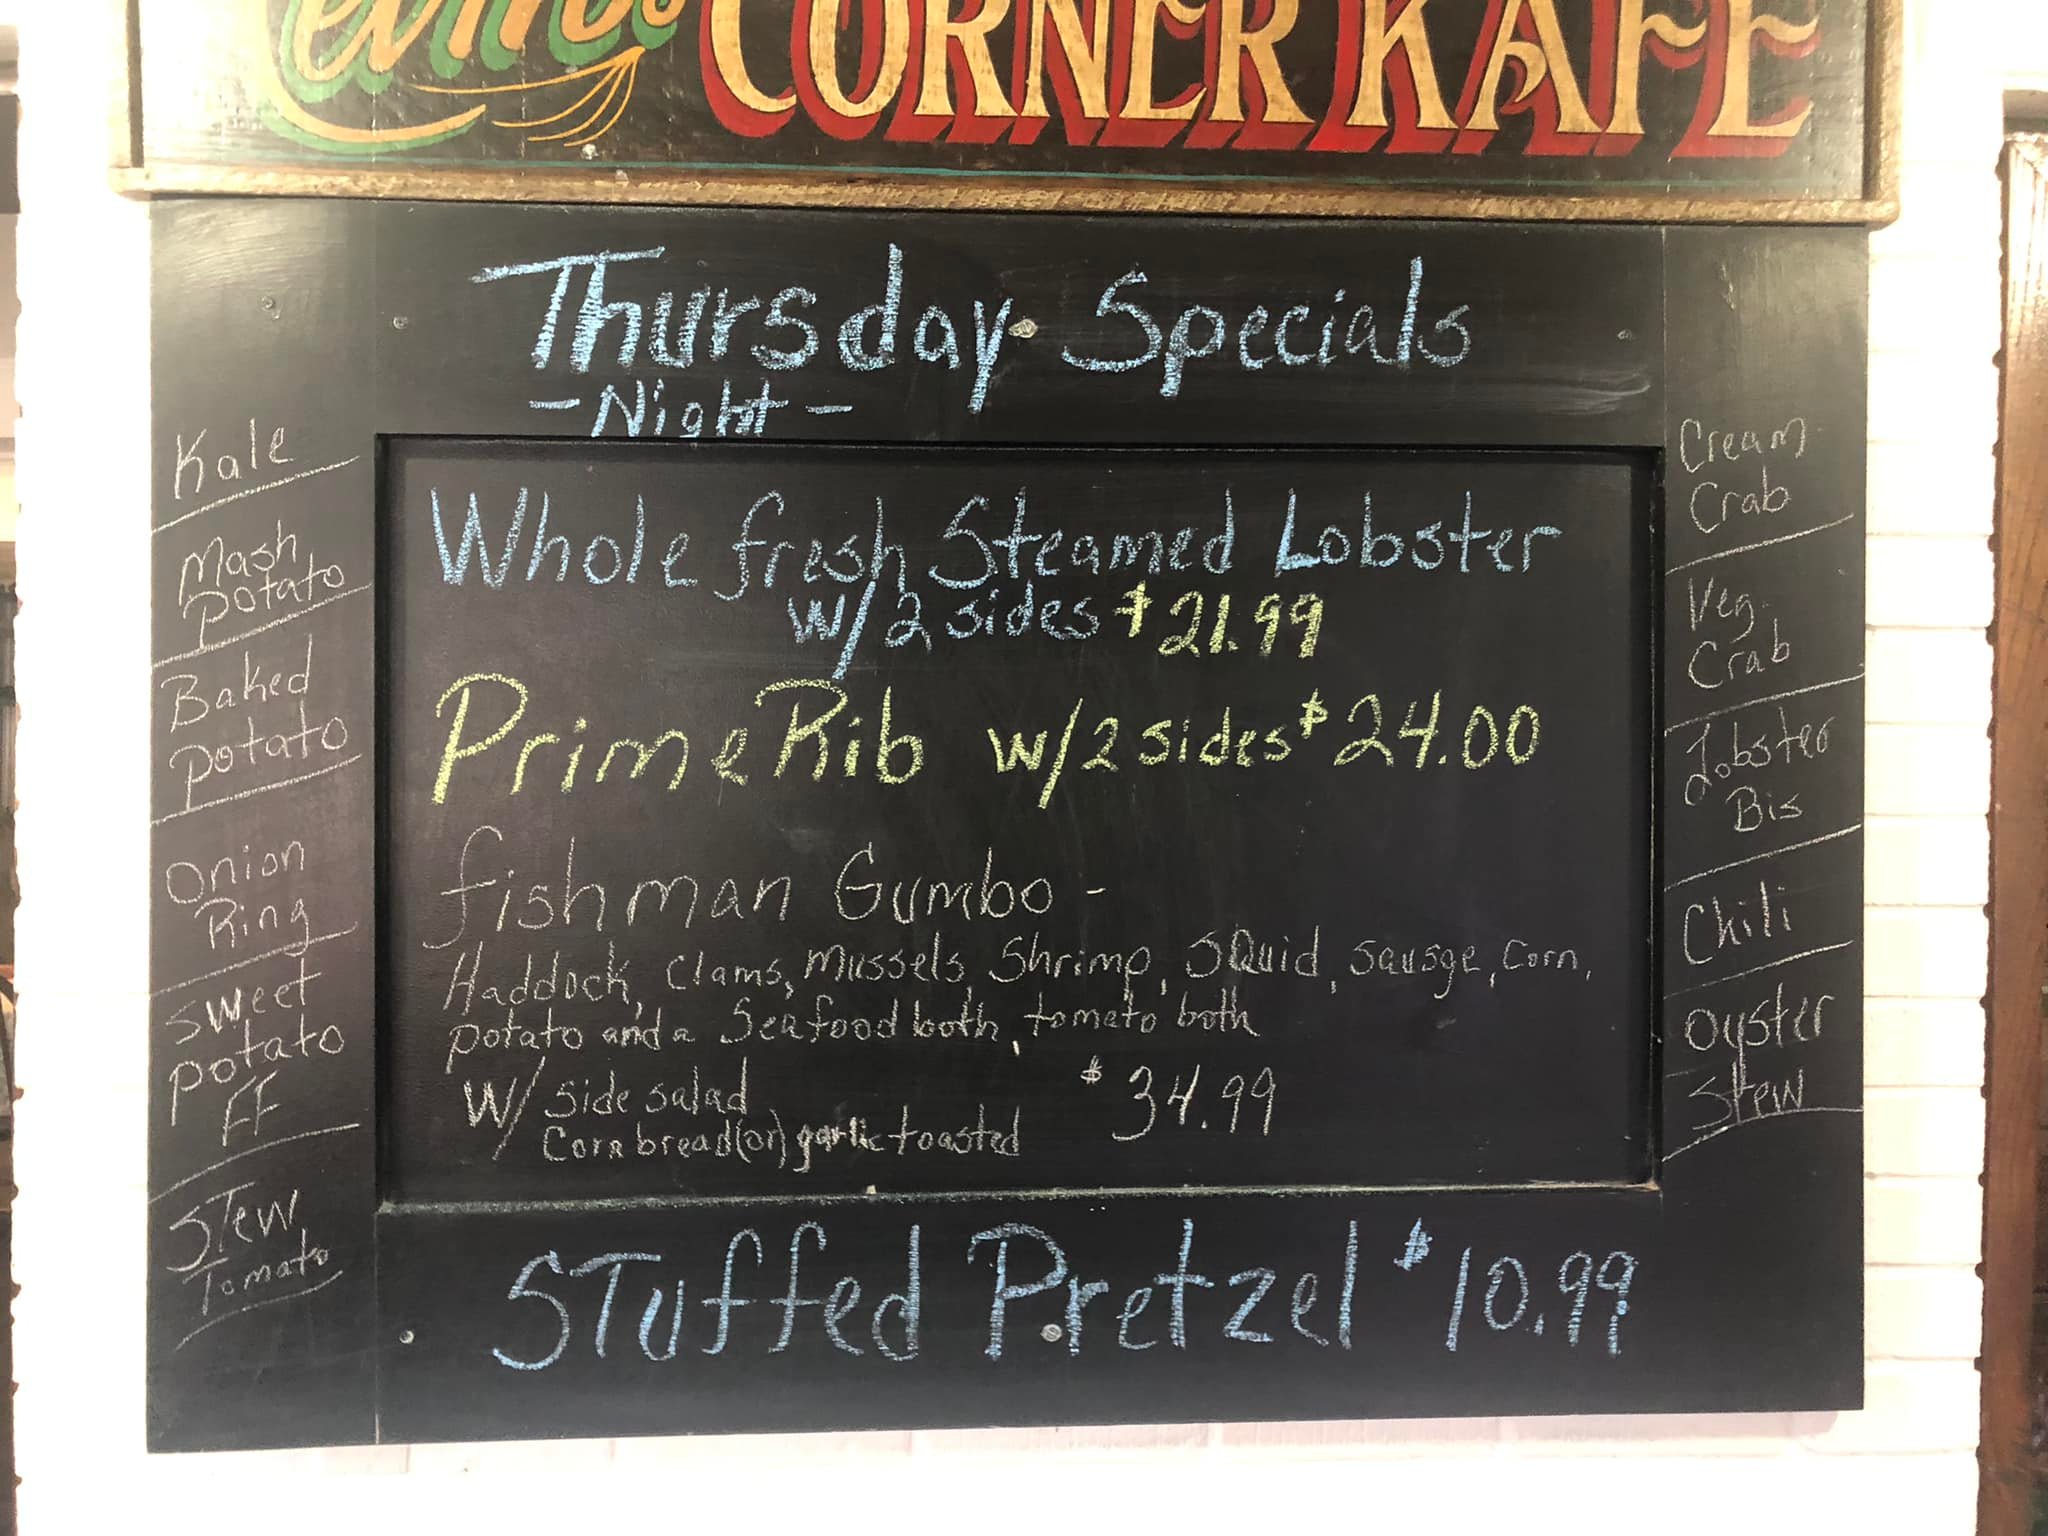 CORNER KAFE
Thursday Specials
- Night -
Kale
Mash
potato
Baked
potato
Onion
Ring
sweet
potato
FF
STew
Tomato
Whole fresh Steamed Lobster
w/2 sides $21.99
Prime Rib w/2 sides $24.00
fishman Gumbo -
Haddock, Clams, mussels, Shrimp, SQuid, sausge, corn,
potato and a Seafood both, tomato both
W/ side salad $34.99
Corn bread (or) garlic toasted
Cream
Crab
Veg.
Crab
Lobster
Bis
Chili
Oyster
Stew
STuffed Pretzel $10.99